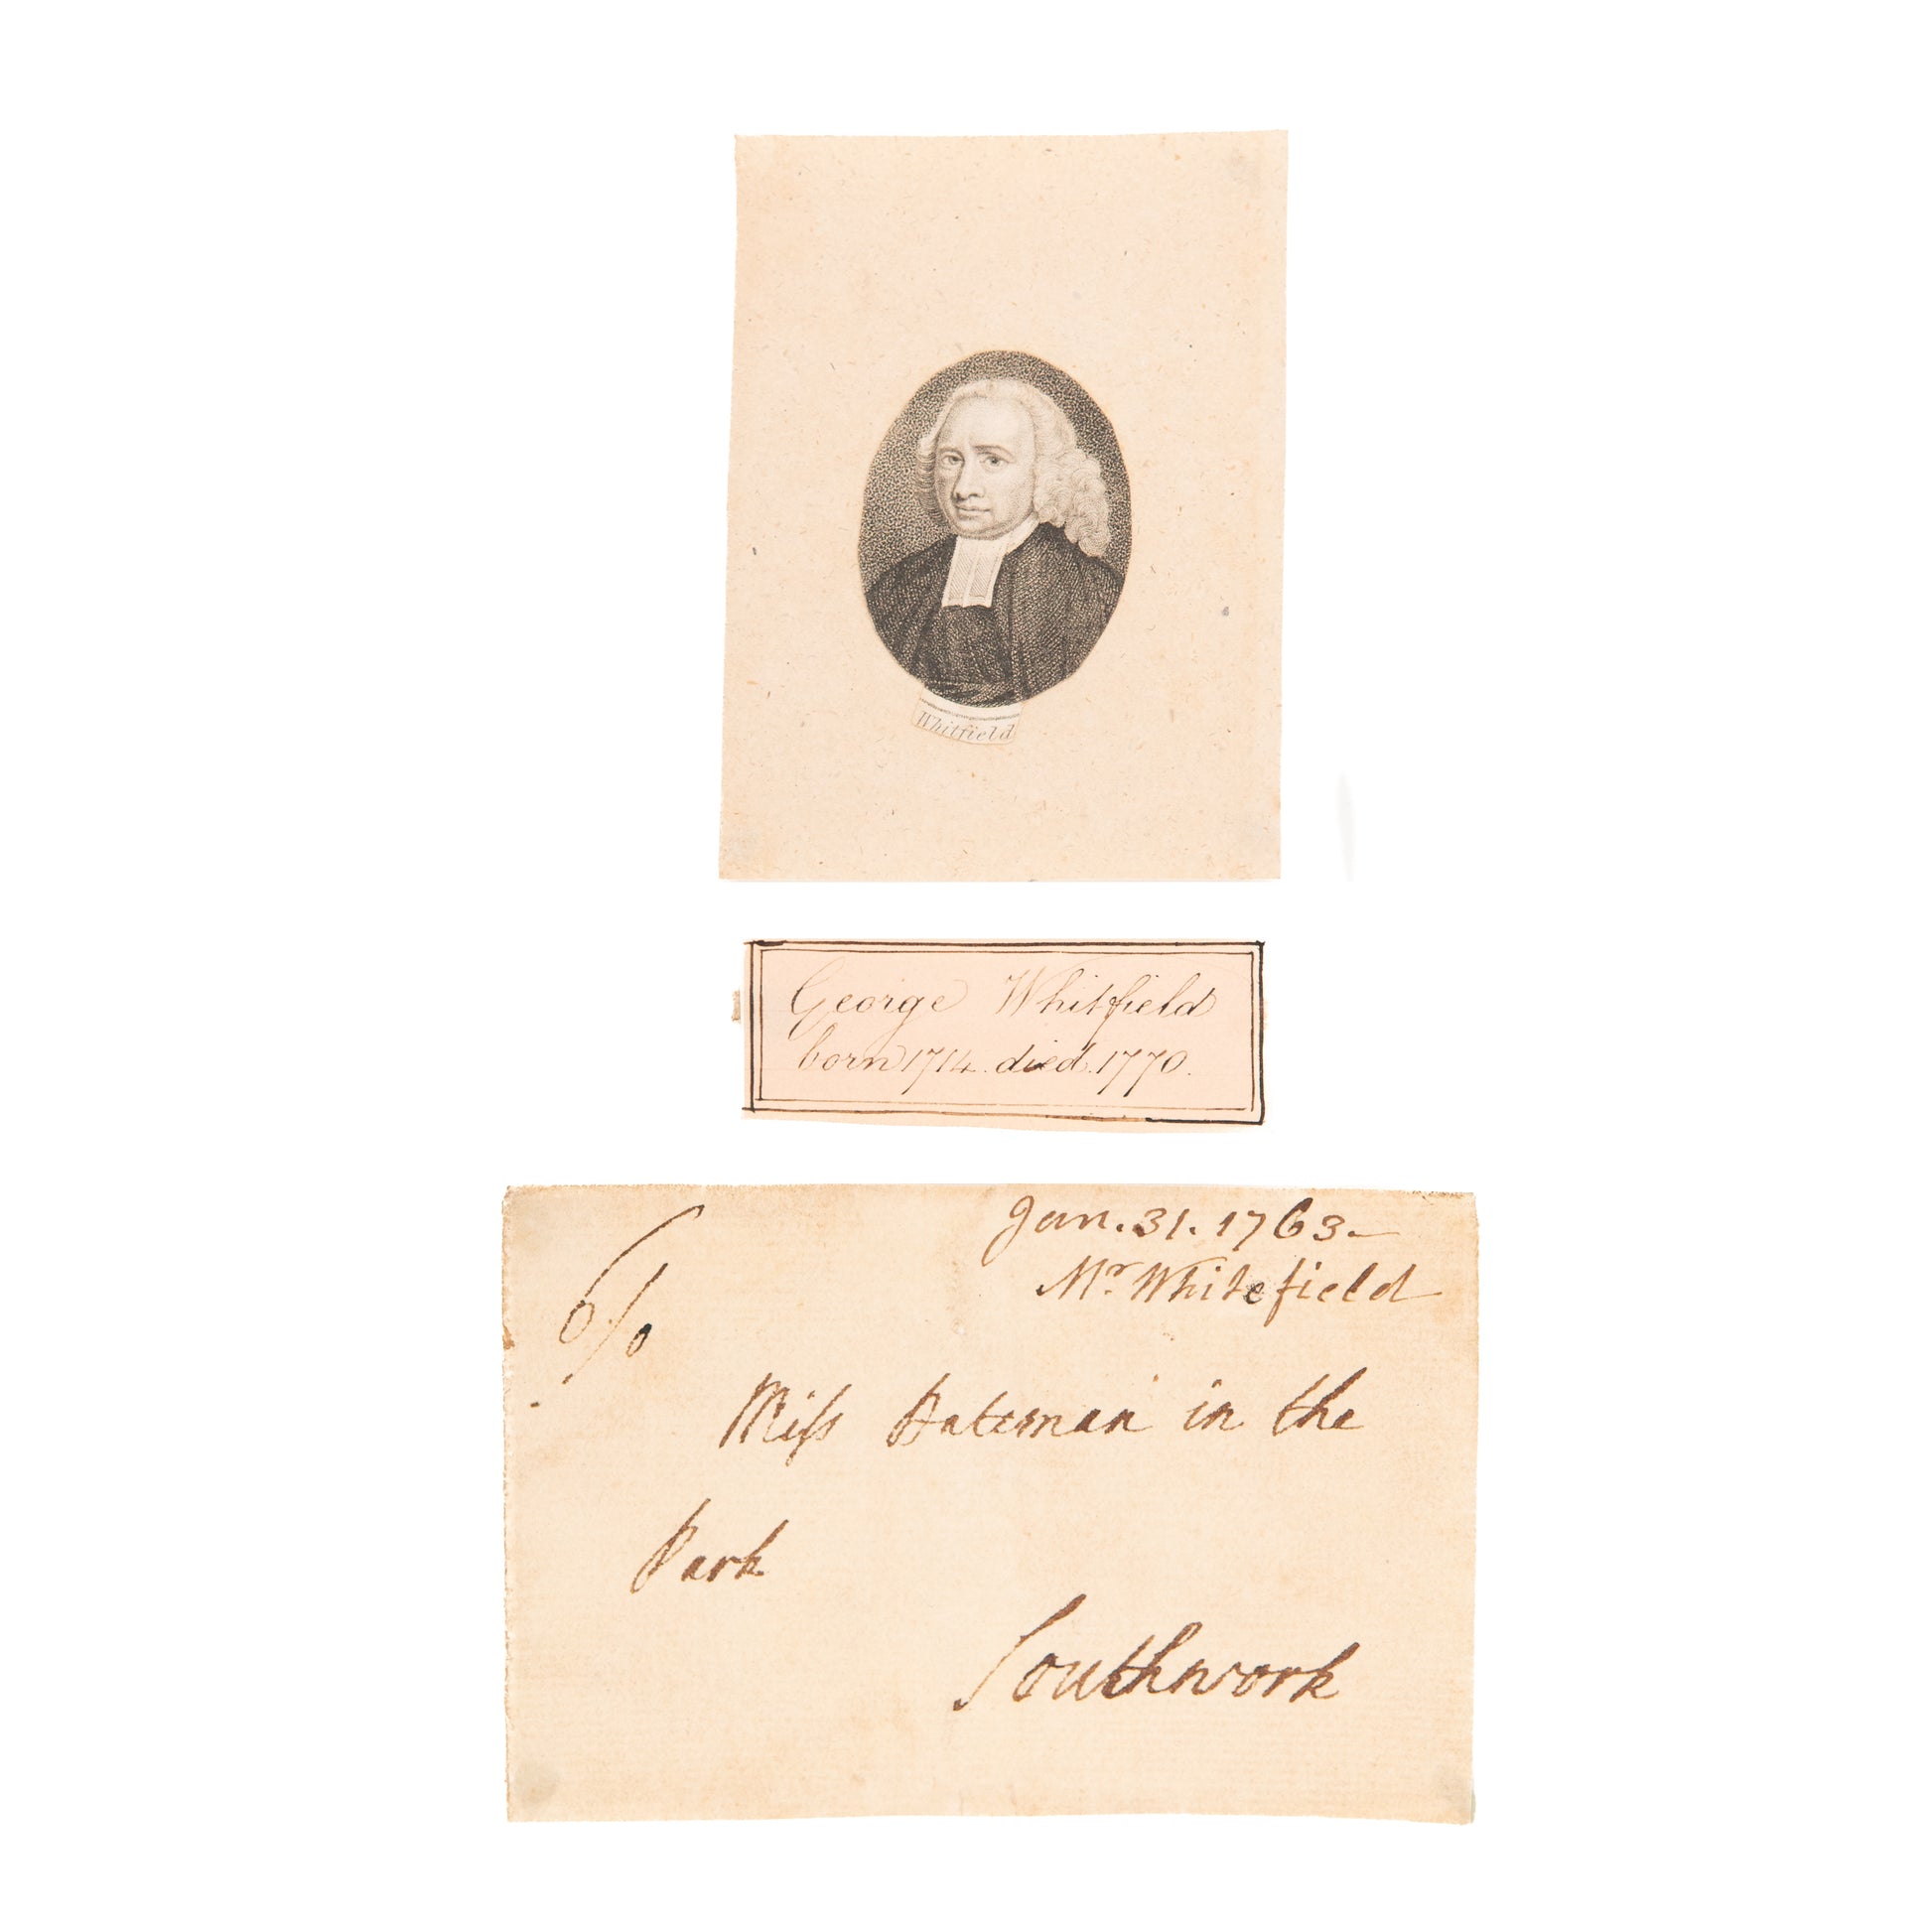 Whitfield
George Whitfield
born 1714. died. 1770.
Jan. 31. 1763.—
Mr. Whitefield
Miſs Bateman in the
Park
Southwork